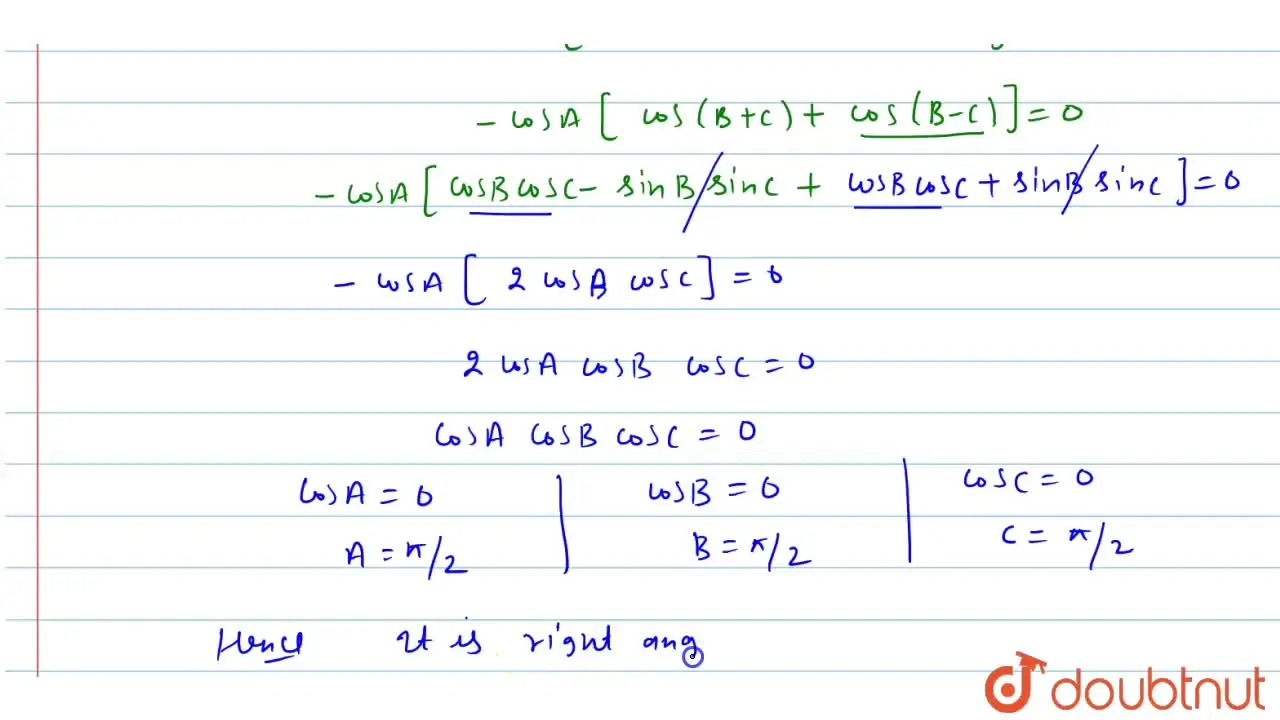 - cosA [ cos(B+C) + cos(B-C)] = 0
- cosA [ cosB cosC - sinB sinC + cosB cosC + sinB sinC ] = 0
- cosA [ 2 cosB cosC ] = 0
2 cosA cosB cosC = 0
cosA cosB cosC = 0
cosA = 0 | cosB = 0 | cosC = 0
A = π/2 | B = π/2 | C = π/2
Hence It is right ang
doubtnut